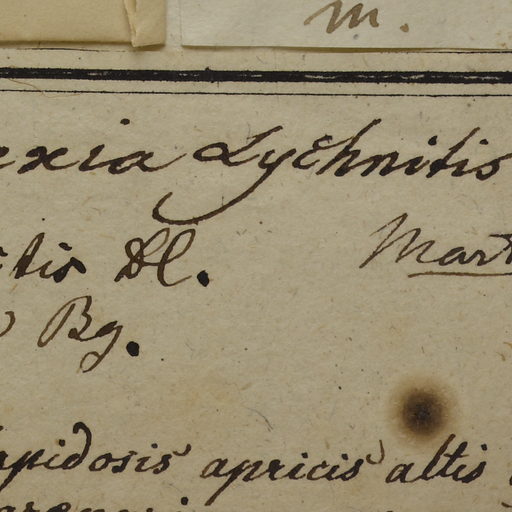 m.
exia Lychnitis
tis Dl. Mart
Bg.
apidosis apricis altis